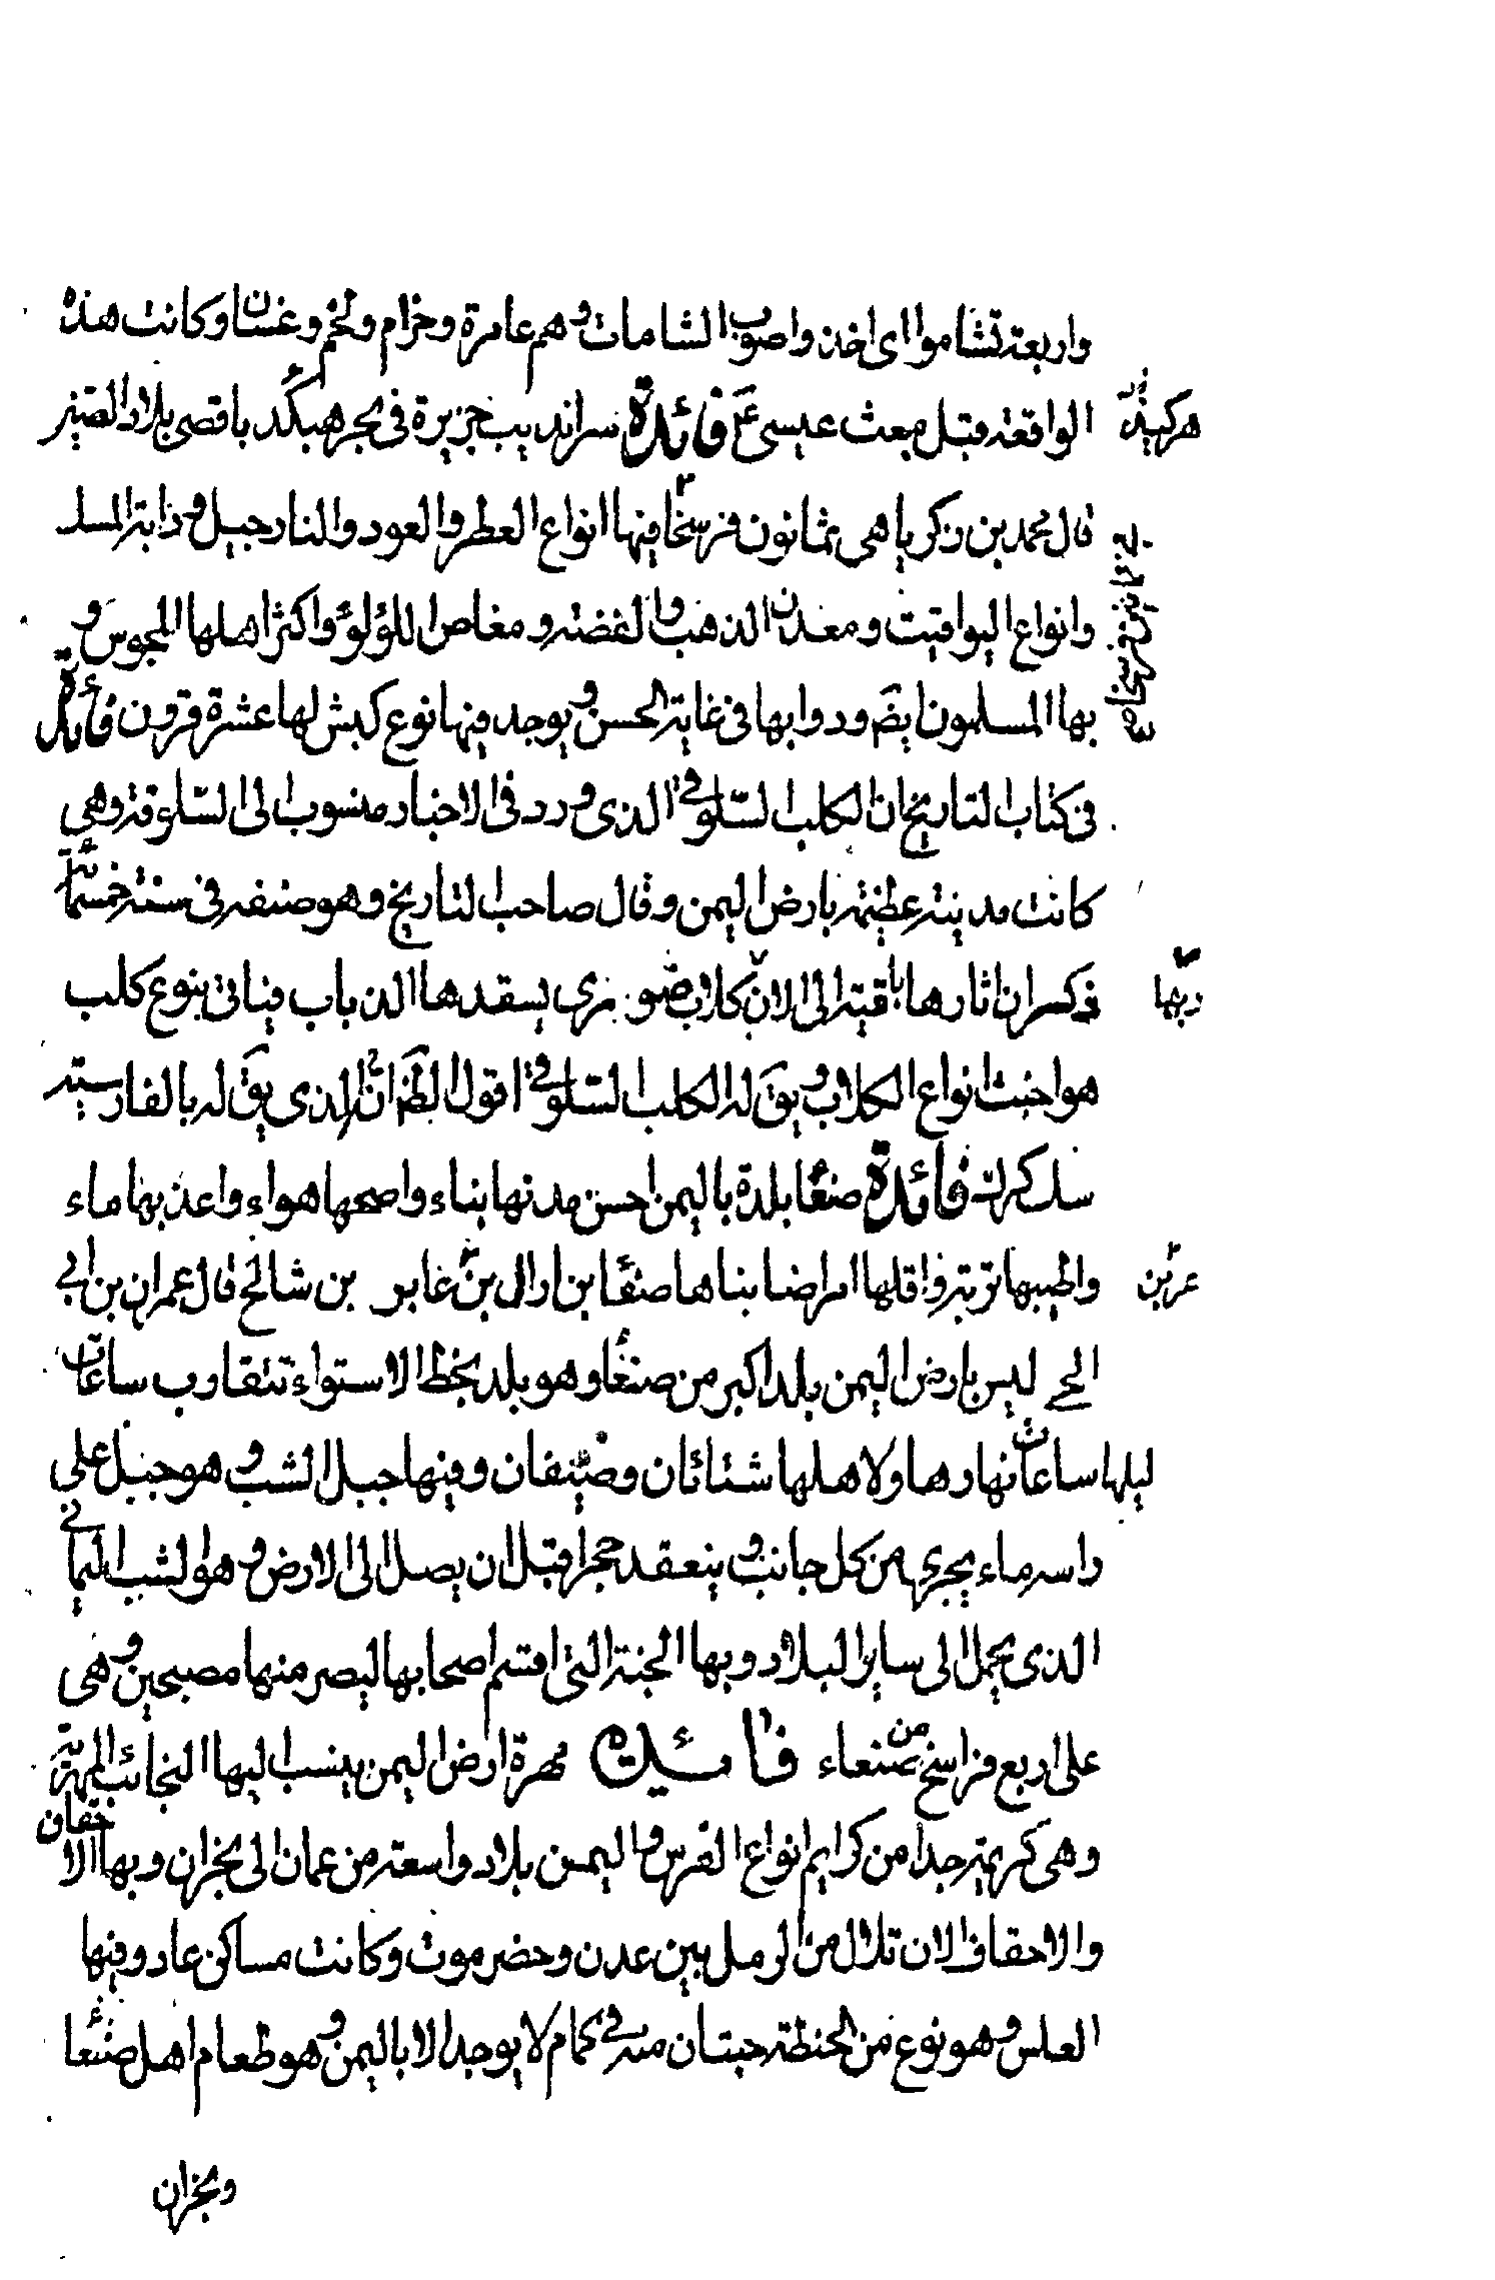 واربعة تشاموا اى اخذوا صوب الشامات وهم عامرة وخزام ولخم وغسان وكانت هذه
الواقعة قبل مبعث عيسى ع فائدة سرانديب جزيرة فى بحر هبكند باقصى بلاد الصين
هركند
قال محمد بن زكريا هى ثمانون فرسخا فيها انواع العطر والعود والنارجيل ودابة المسك
وانواع اليواقيت ومعدن الذهب والفضة ومغاص اللؤلؤ واكثر اهلها المجوس و
بها المسلمون ايضَ ودوابها فى غاية الحسن ويوجد فيها نوع كبش لها عشرة قرون فائدة
فى كتاب التاريخ ان الكلب السّلوقى الذى ورد فى الاخبار منسوب الى السّلوقة وهى
كانت مدينة عظيمة بارض اليمن وقال صاحب التاريخ وهو صنفه فى سنة خمسمائة
ان اثارها باقية الى الان كلاب يسفدها الذياب فياتى بنوع كلب
ربها
هو اخبث انواع الكلاب ويقَ له الكلب السّلوقى اقول الظَ انّ الذى يقَ له بالفارسية
فائدة صنعا بلدة باليمن احسن مدنها بناء واصحها هواء واعذبها ماء
واطيبها تربة واقلها امراضا بناها صنعا بن ازال بن غابر بن شالخ قال عمران بن ابى
عر بن
الحى ليس بارض اليمن بلد اكبر من صنعا وهو بلد بخط الاستواء تتقارب ساعات
ليلها ساعات نهارها ولاهلها شتائان وصيفان وفيها جبل الشب وهو جبل على
راسه ماء يجرى من كل جانب وينعقد حجرا قبل ان يصل الى الارض وهو الشب اليمانى
الذى يحمل الى ساير البلاد وبها الجنة التى اقسم اصحابها ليصرمنها مصبحين وهى
على اربع فراسخ من صنعاء فائدة مهرة ارض اليمن ينسب اليها النجائب المهرية
وهى كريمة جدا من كرايم انواع الفرس واليمن بلاد واسعة من عمان الى نجران وبها الاحقاف
والاحقاف الان تلال من الرمل بين عدن وحضرموت وكانت مساكن عاد وفيها
العلس وهو نوع من الحنطة حبتان منه فى كمام لا يوجد الا باليمن وهو طعام اهل صنعا
ونجران